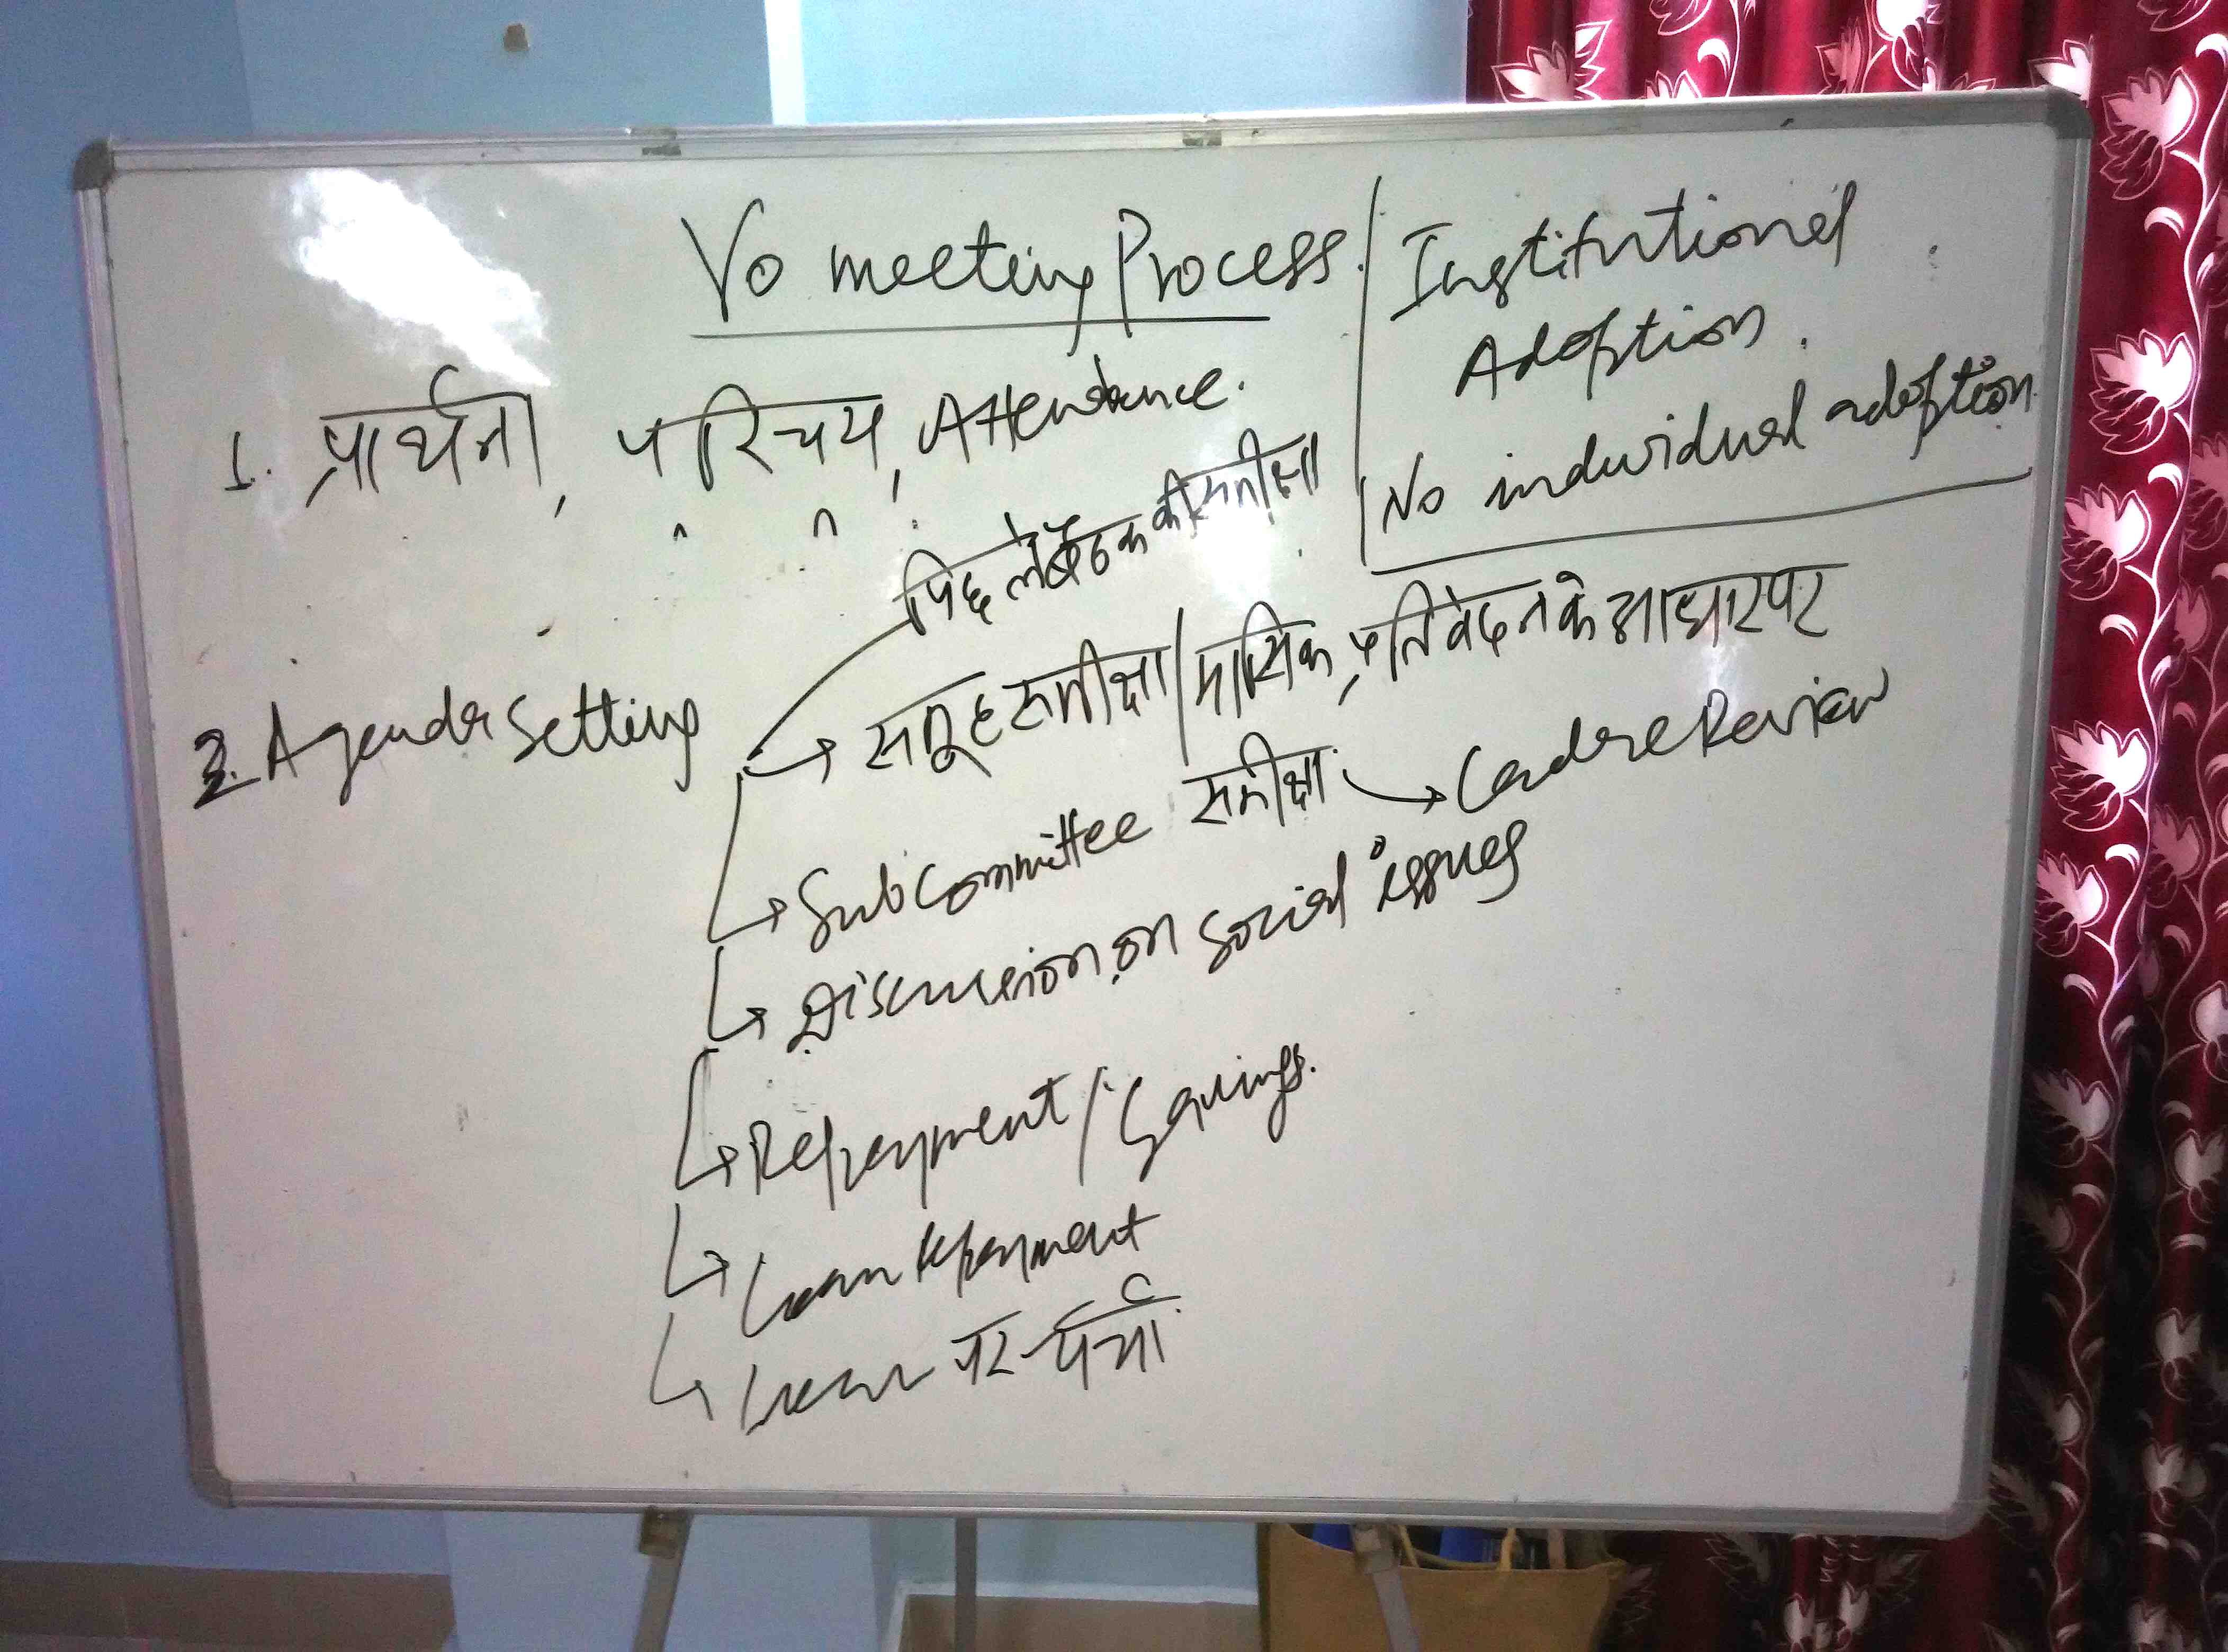 VO meeting Process.
Institutional
Adoption.
No individual adoption.
1. प्रार्थना, परिचय, Attendance.
पिछले बैठक की समीक्षा
2. Agenda Setting
→ समूह समीक्षा / मासिक प्रतिवेदन के आधार पर
→ Subcommittee समीक्षा → Cadre Review
→ Discussion on social issues
→ Repayment / Savings.
→ Loan Repayment
→ Loan पर चर्चा